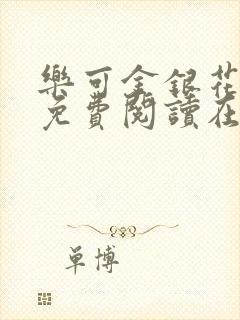 樂可金銀花
免費閱讀在
单博